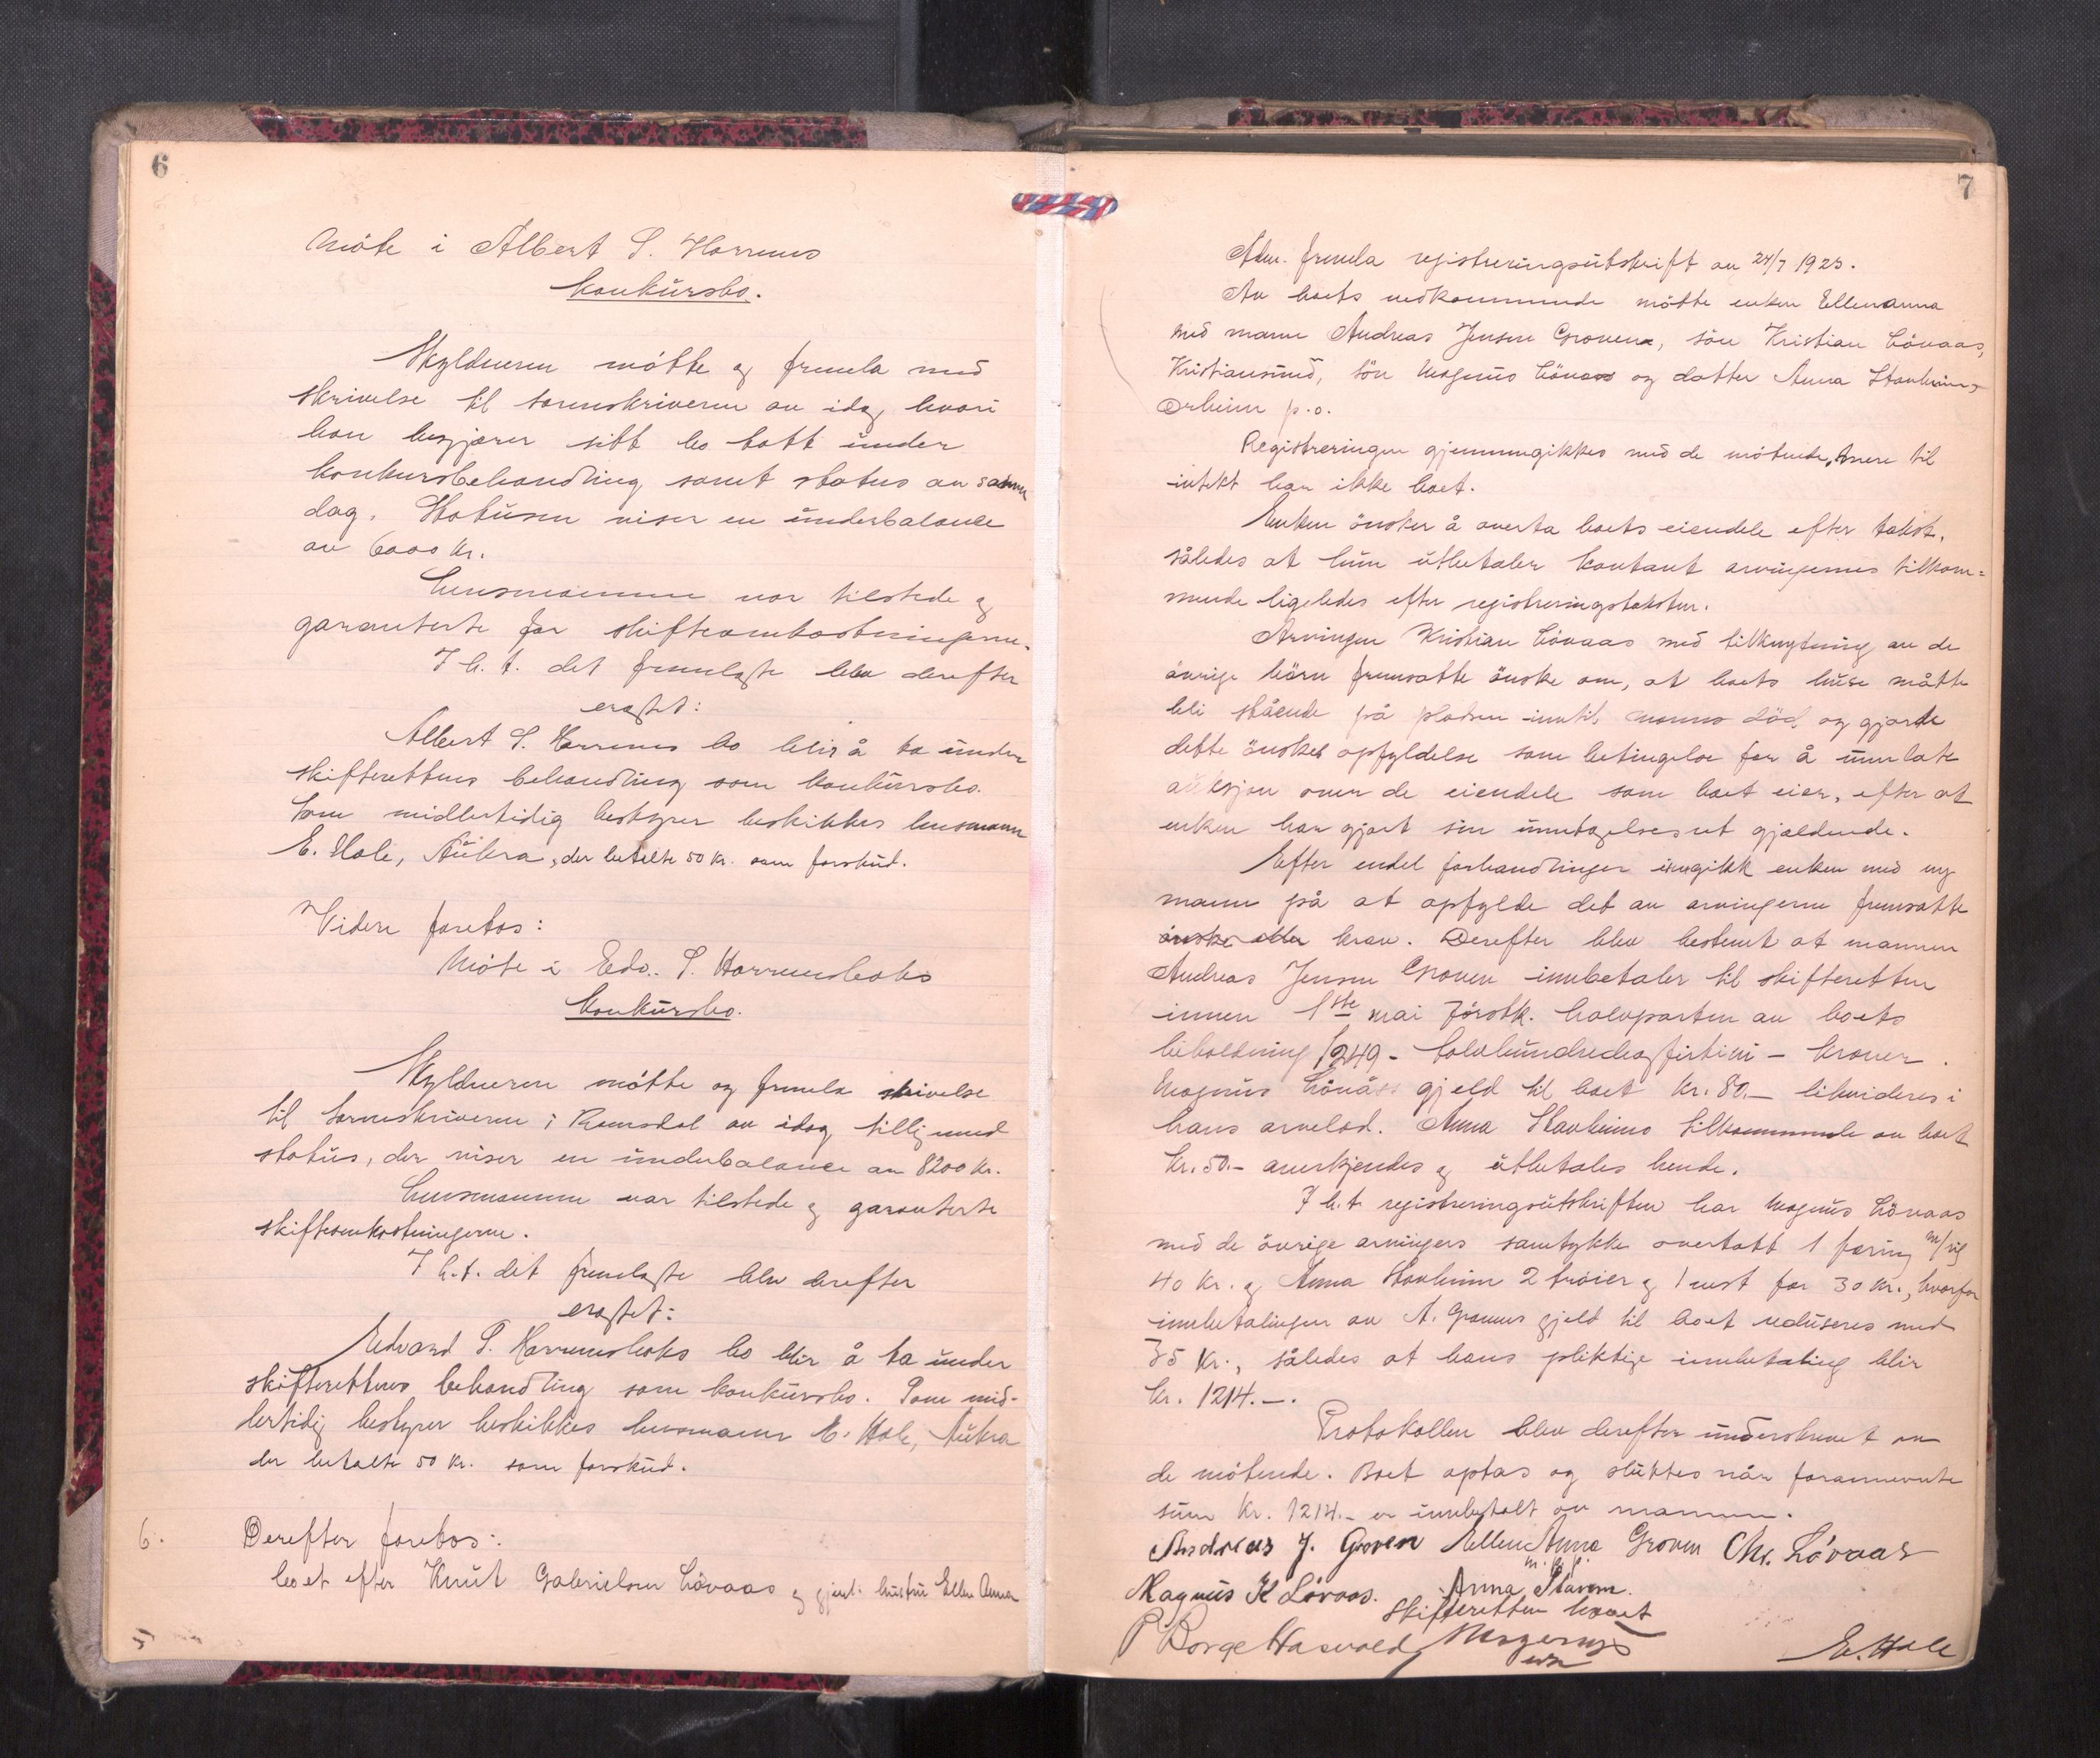 6
Møte i Albert S. Harrems
konkursbo.
Skyldneren møtte og fremla med
skrivelse til sorenskriveren av idag, hvori
han begjærer sitt bo tatt under
konkursbehandling samt status av samme
dag. Statusen viser en underbalance
av 6000 kr.
Lensmannen var tilstede og
garanterte for skifteomkostningerne.
I h. t. det fremlagte blev derefter
eragtet:
Albert S. Harrems bo blir å ta under
skifterettens behandling som konkursbo.
Som midlertidig bestyrer beskikkes lensmann
E. Hole, Aukra, der betalte 50 kr. som forskud.
Videre foretos:
Møte i Edv. S. Harremsbaks
konkursbo.
Skyldneren møtte og fremla skrivelse
til sorenskriveren i Romsdal av idag tillig med
status, der viser en underbalance av 8200 kr.
Lensmannen var tilstede og garanterte
skifteomkostningerne.
I h. t. det fremlagte blev derefter
eragtet:
Edvard S. Harremsbaks bo blir å ta under
skifterettens behandling som konkursbo. Som mid-
lertidig bestyrer beskikkes lensmann E. Hole, Aukra
der betalte 50 kr. som forskud.
6. Derefter foretos:
boet efter Knut Gabrielsen Lövaas og gjenl. hustru Ellen Anna
7
Adm. fremla registreringsutskrift av 24/7 1923.
Av boets vedkommende møtte enken Ellenanna
med mann Andreas Jensen Groven, sön Kristian Lövaas,
Kristiansund, sön Magnus Lövaas og datter Anna Stavheim,
Orheim p.o.
Registreringen gjennemgikkes med de møtende. Mere til
intekt har ikke boet.
Enken önsker å overta boets eiendele efter takst,
således at hun utbetaler kontant arvingernes tilkom=
mende ligeledes efter registreringstaksten.
Arvingen Kristian Lövaas med tilknytning av de
övrige börn fremsatte önske om, at boets huse måtte
bli stående på pladsen inntil mannens död og gjorde
dette önskes opfyldelse som betingelse for å unnlate
auksjon over de eiendele som boet eier, efter at
enken har gjort sin unntagelsesret gjældende.
Efter endel forhandlinger inngikk enken med ny
mann på at opfylde det av arvingerne fremsatte
önske eller krav. Derefter blev bestemt at mannen
Andreas Jensen Groven innbetaler til skifteretten
innen 1ste mai förstk. halvparten av boets
beholdning 1249 - tolvhundredeogfirtini - kroner.
Magnus Lövåss gjeld til boet kr. 80.- likvideres i
hans arvelod. Anna Stavheims tilkommende av boet
kr. 50.- anerkjendes og utbetales hende.
I h. t. registreringsutskriften har Magnus Lövaas
med de övrige arvingers samtykke overtatt 1 færing m/seil
40 kr. og Anna Stavheim 2 tröier og 1 vest for 30 kr., hvorfor
innbetalingen av A. Grovens gjeld til boet reduseres med
35 kr., således at hans pliktige innbetaling blir
kr. 1214.-.
Protokollen blev derefter underskrevet av
de møtende. Boet optas og sluttes når forannevnte
sum kr. 1214.- er innbetalt av mannen.
Andreas J. Groven Ellen Anna Groven Chr. Lövaas
m. p. p.
Magnus K Lövaas. Anna Stavem.
Skifteretten hævet
P Borge Hasvold E. Hole